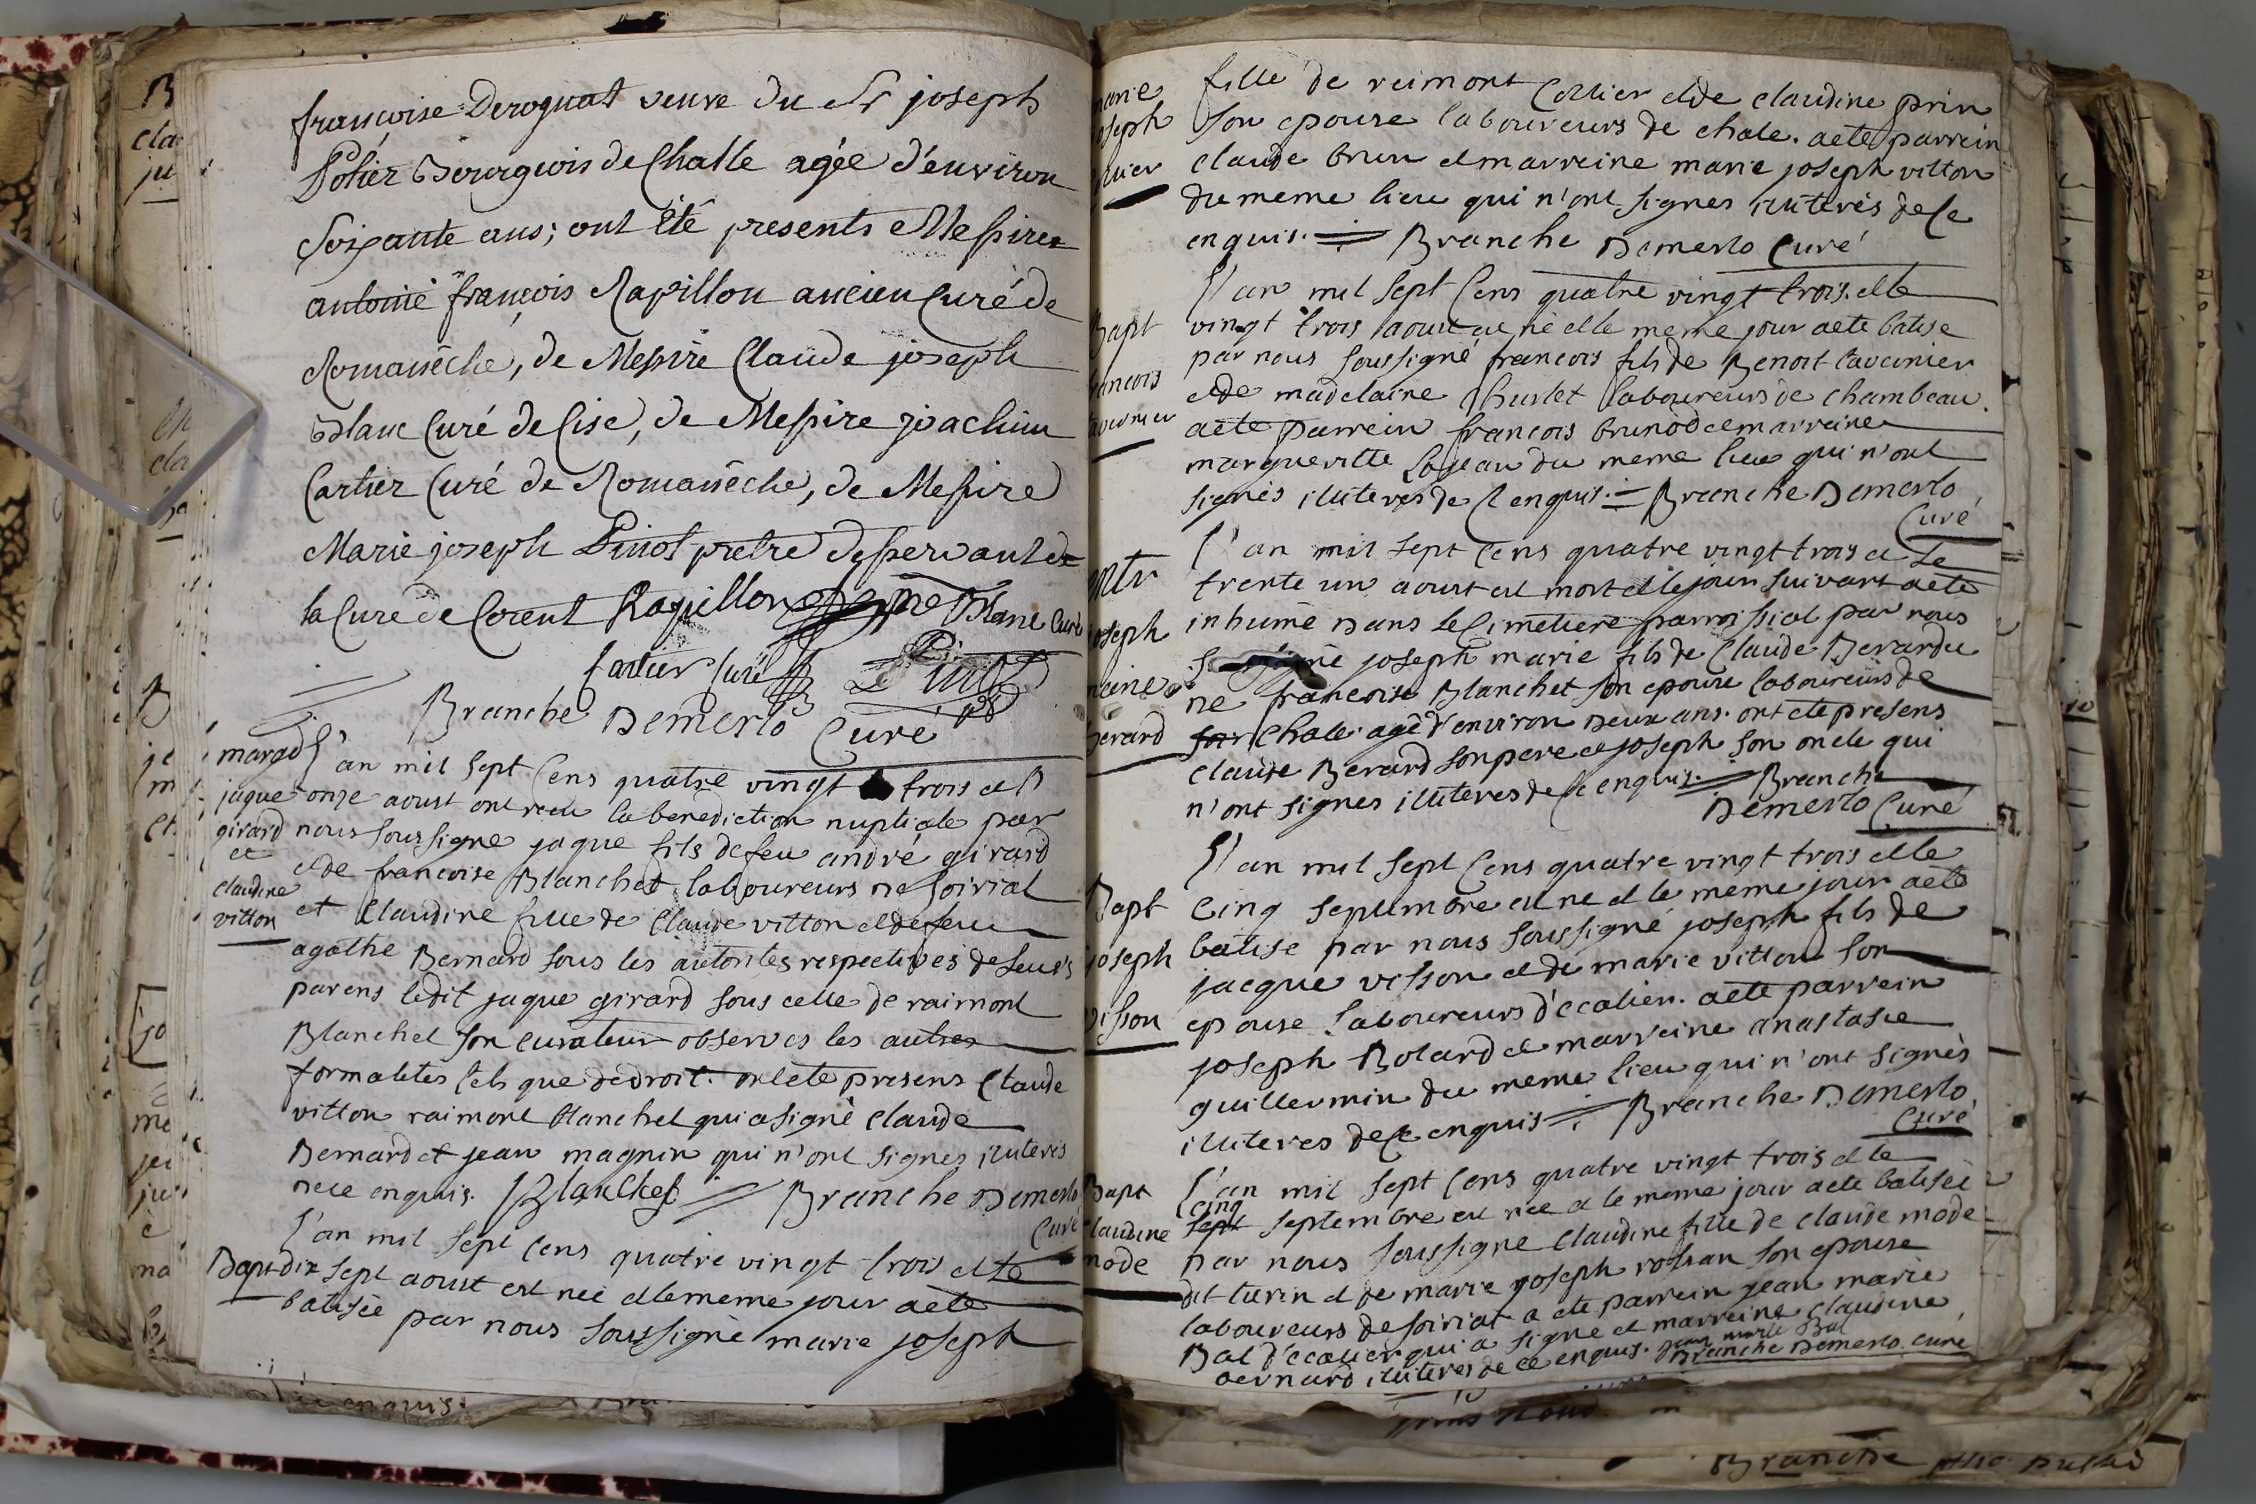 françoise Derognat veuve du Sr joseph
Potier Bourgeois de Challe agée d'environ
Soixante ans; ont été presents Messire
antoine françois Rapillon ancien Curé de
Romanêche, de Messire Claude joseph
Blanc Curé de Cise, de Messire joachim
Cartier Curé de Romanêche, de Messire
Marie joseph Pinot pretre desservant de
la Cure de Corent Rapillon Blanc Curé
Cartier Curé Pinot
Branche Demerlo Curé
mared
jaque
girard
et
claudine
vitton
L'an mil sept Cens quatre vingt trois et le
onze aoust ont recu la benediction nuptiale par
nous soussigne jaque fils de feu andré girard
et de francoise Blanchet laboureurs de soiriat
et claudine fille de Claude vitton et de feu
agathe Bernard sous les autorites respectives de leurs
parens ledit jaque girard sous celle de raimont
Blanchet son curateur observes les autres
formalites tels que de droit. ont ete presens Claude
vitton raimont Blanchet qui a signé claude
Bernard et jean magnin qui n'ont signes iliteres
de ce enquis. Blanchet Branche Demerlo
Curé
Bapt
L'an mil sept Cens quatre vingt trois et le
dix sept aoust est neé et le meme jour a ete
batisée par nous soussigné marie joseph
marie
joseph
fille de reimont Collier et de claudine prin
son epouse laboureurs de chale. a ete parrein
claude brun et marreine marie joseph vitton
du meme lieu qui n'ont signes iliterés de ce
enquis. Branche Demerlo Curé
Bapt
francois
tavernier
L'an mil sept Cens quatre vingt trois. et le
vingt trois aoust est né et le meme jour a ete batise
par nous soussigné francois fils de Benoit tavernier
et de madelaine Churlet laboureurs de chambeau.
a ete parrein francois brunod et marreine
margueritte du meme lieu qui n'ont
signés iliterés de Ce enquis. Branche Demerlo
Curé
entr
joseph
marie
berard
L'an mil sept Cens quatre vingt trois et le
trente un aoust est mort et le jour suivant a ete
inhumé dans le Cimetiere parroissial par nous
soussigné joseph marie fils de Claude Berard et
de francoise Blanchet son epouse laboureurs de
chale agé d'environ deux ans. ont ete presens
claude Berard son pere et joseph son oncle qui
n'ont signes iliteres de Ce enquis. Branche
Demerlo Curé
Bapt
joseph
visson
L'an mil sept Cens quatre vingt trois et le
cinq septembre est ne et le meme jour a ete
batise par nous soussigné joseph fils de
jacque visson et de marie vitton son
epouse laboureurs d'ecalier. a ete parrein
joseph Bolard et marreine anastasie
guillermin du meme lieu qui n'ont signés
iliteres de Ce enquis Branche Demerlo
Curé
Bapt
claudine
mode
L'an mil sept Cens quatre vingt trois et le
cinq
sept septembre est nee et le meme jour a ete batisée
par nous soussigne claudine fille de claude mode
dit turin et de marie joseph son epouse
laboureurs de soiriat a ete parrein jean marie
Bal d'ecalier qui a signe et marreine claudine
bernard iliteres de ce enquis. jean marie Bal
Branche Demerlo curé